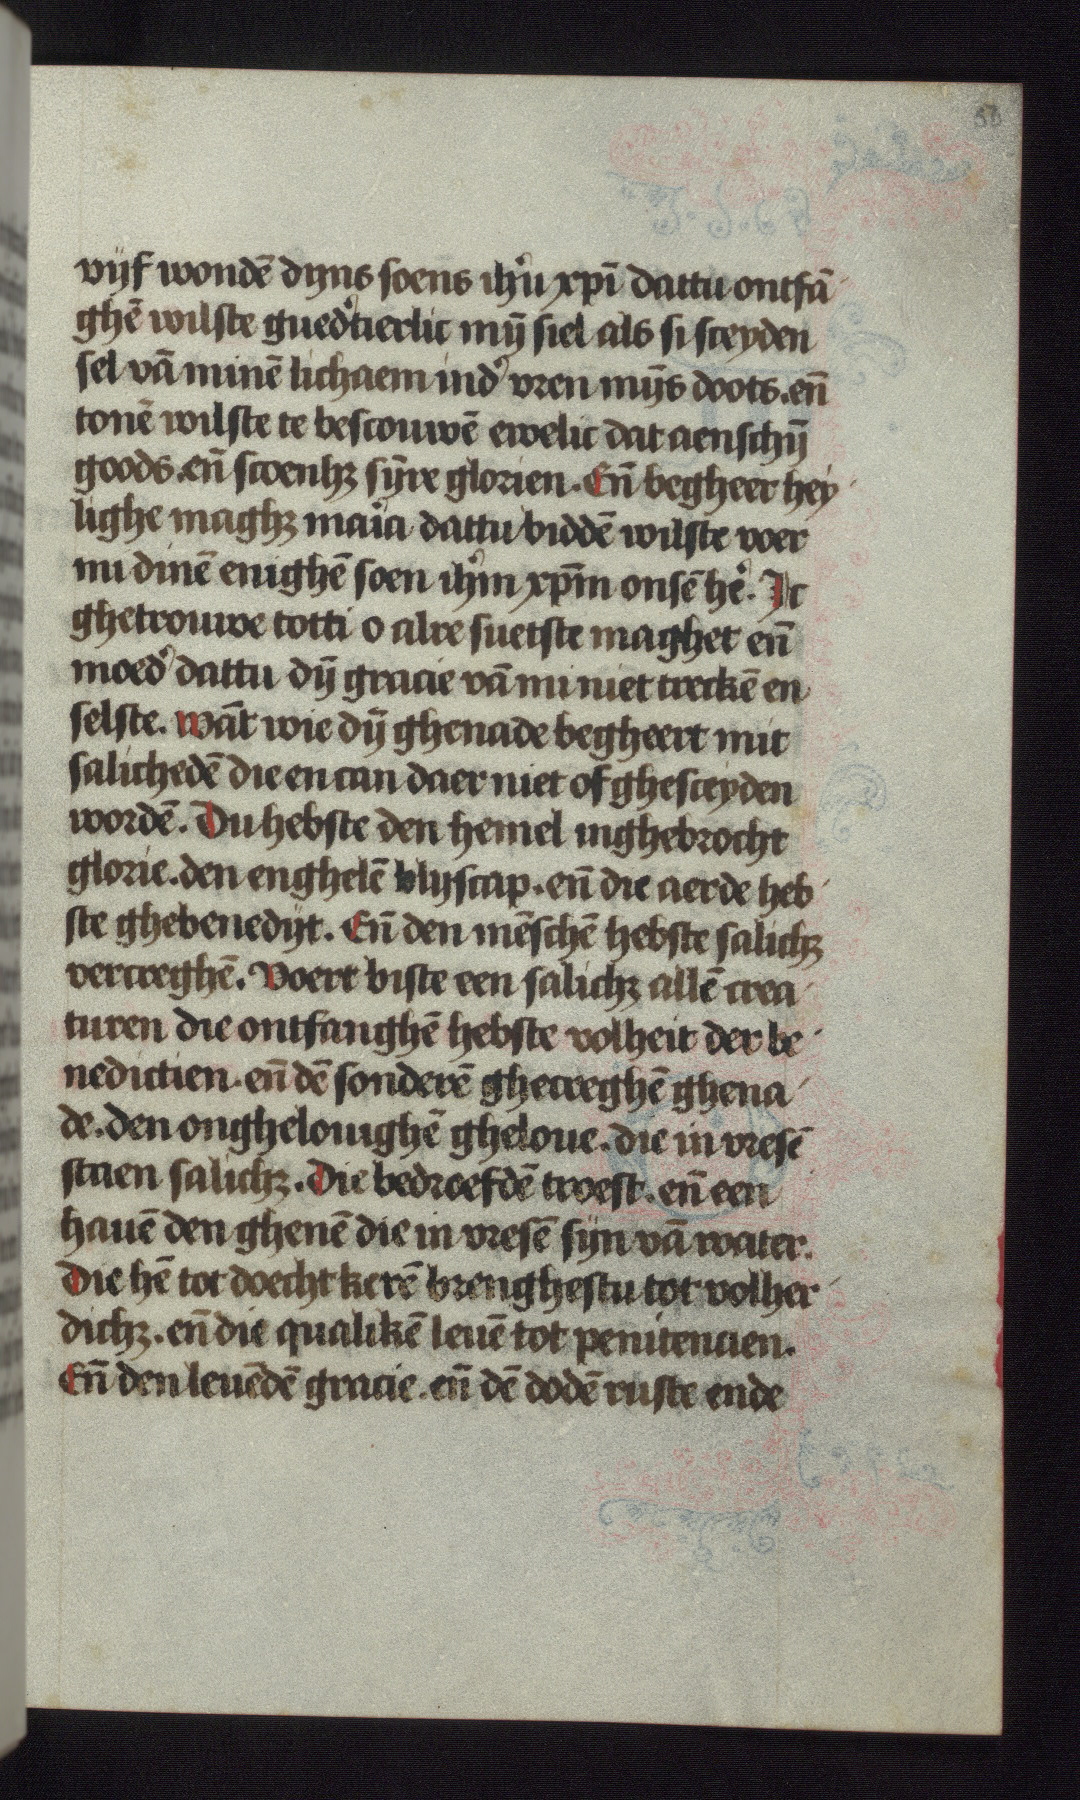 56
vijf wondē dyns soens ihu xpi dattu ontfā
ghē wilste guedtierlic mȳ siel als si sceyden
sel vā minē lichaem ind vren mȳs doots. eñ
tonē wilste te bescouwē ewelic dat aenschȳ
goods. eñ scoenhꝫ sȳre glorien. Eñ begheer hey
lighe maghꝫ maia dattu biddē wilste voer
mi dinē enighē soen ihm xpm onsē hē. Ic
ghetrouwe totti o alre suetste maghet eñ
moed dattu dȳ gracie vā mi niet treckē en
selste. Wāt wie dȳ ghenade begheert mit
salichedē die en can daer niet of ghesceyden
wordē. Du hebste den hemel inghebrocht
glorie. den enghelē blijscap. eñ die aerde heb
ste ghebenedijt. Eñ den mēschē hebste salichꝫ
vercreghē. Voert biste een salichꝫ allē crea
turen die ontfanghē hebste volheit der be
nedictien. eñ dē sonderē ghecreghē ghena
de. den onghelouighē gheloue. die in vresē
staen salichꝫ. Die bedroefdē troest. eñ een
hauē den ghenē die in vresē sijn vā water.
Die hē tot doecht kerē brenghestu tot volher
dichꝫ. eñ die qualikē leuē tot penitencien.
Eñ den leuēdē gracie. eñ dē dodē ruste ende